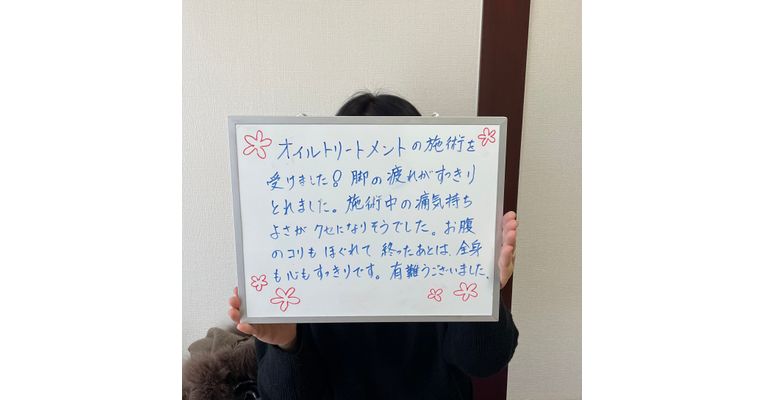 オイルトリートメントの施術を
受けました!脚の疲れがすっきり
とれました。施術中の痛気持ち
よさがクセになりそうでした。お腹
のコリもほぐれて終ったあとは、全身
も心もすっきりです。有難うございました。